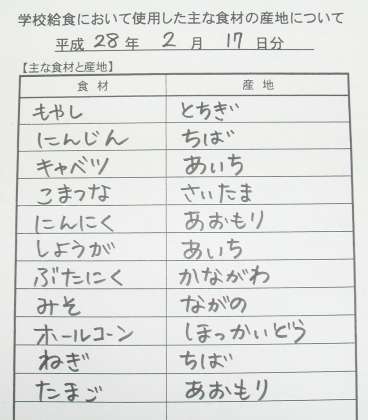 学校給食において使用した主な食材の産地について
平成 28 年 2 月 17 日分
【主な食材と産地】
食材 産地
もやし とちぎ
にんじん ちば
キャベツ あいち
こまつな さいたま
にんにく あおもり
しょうが あいち
ぶたにく かながわ
みそ ながの
ホールコーン ほっかいどう
ねぎ ちば
たまご あおもり